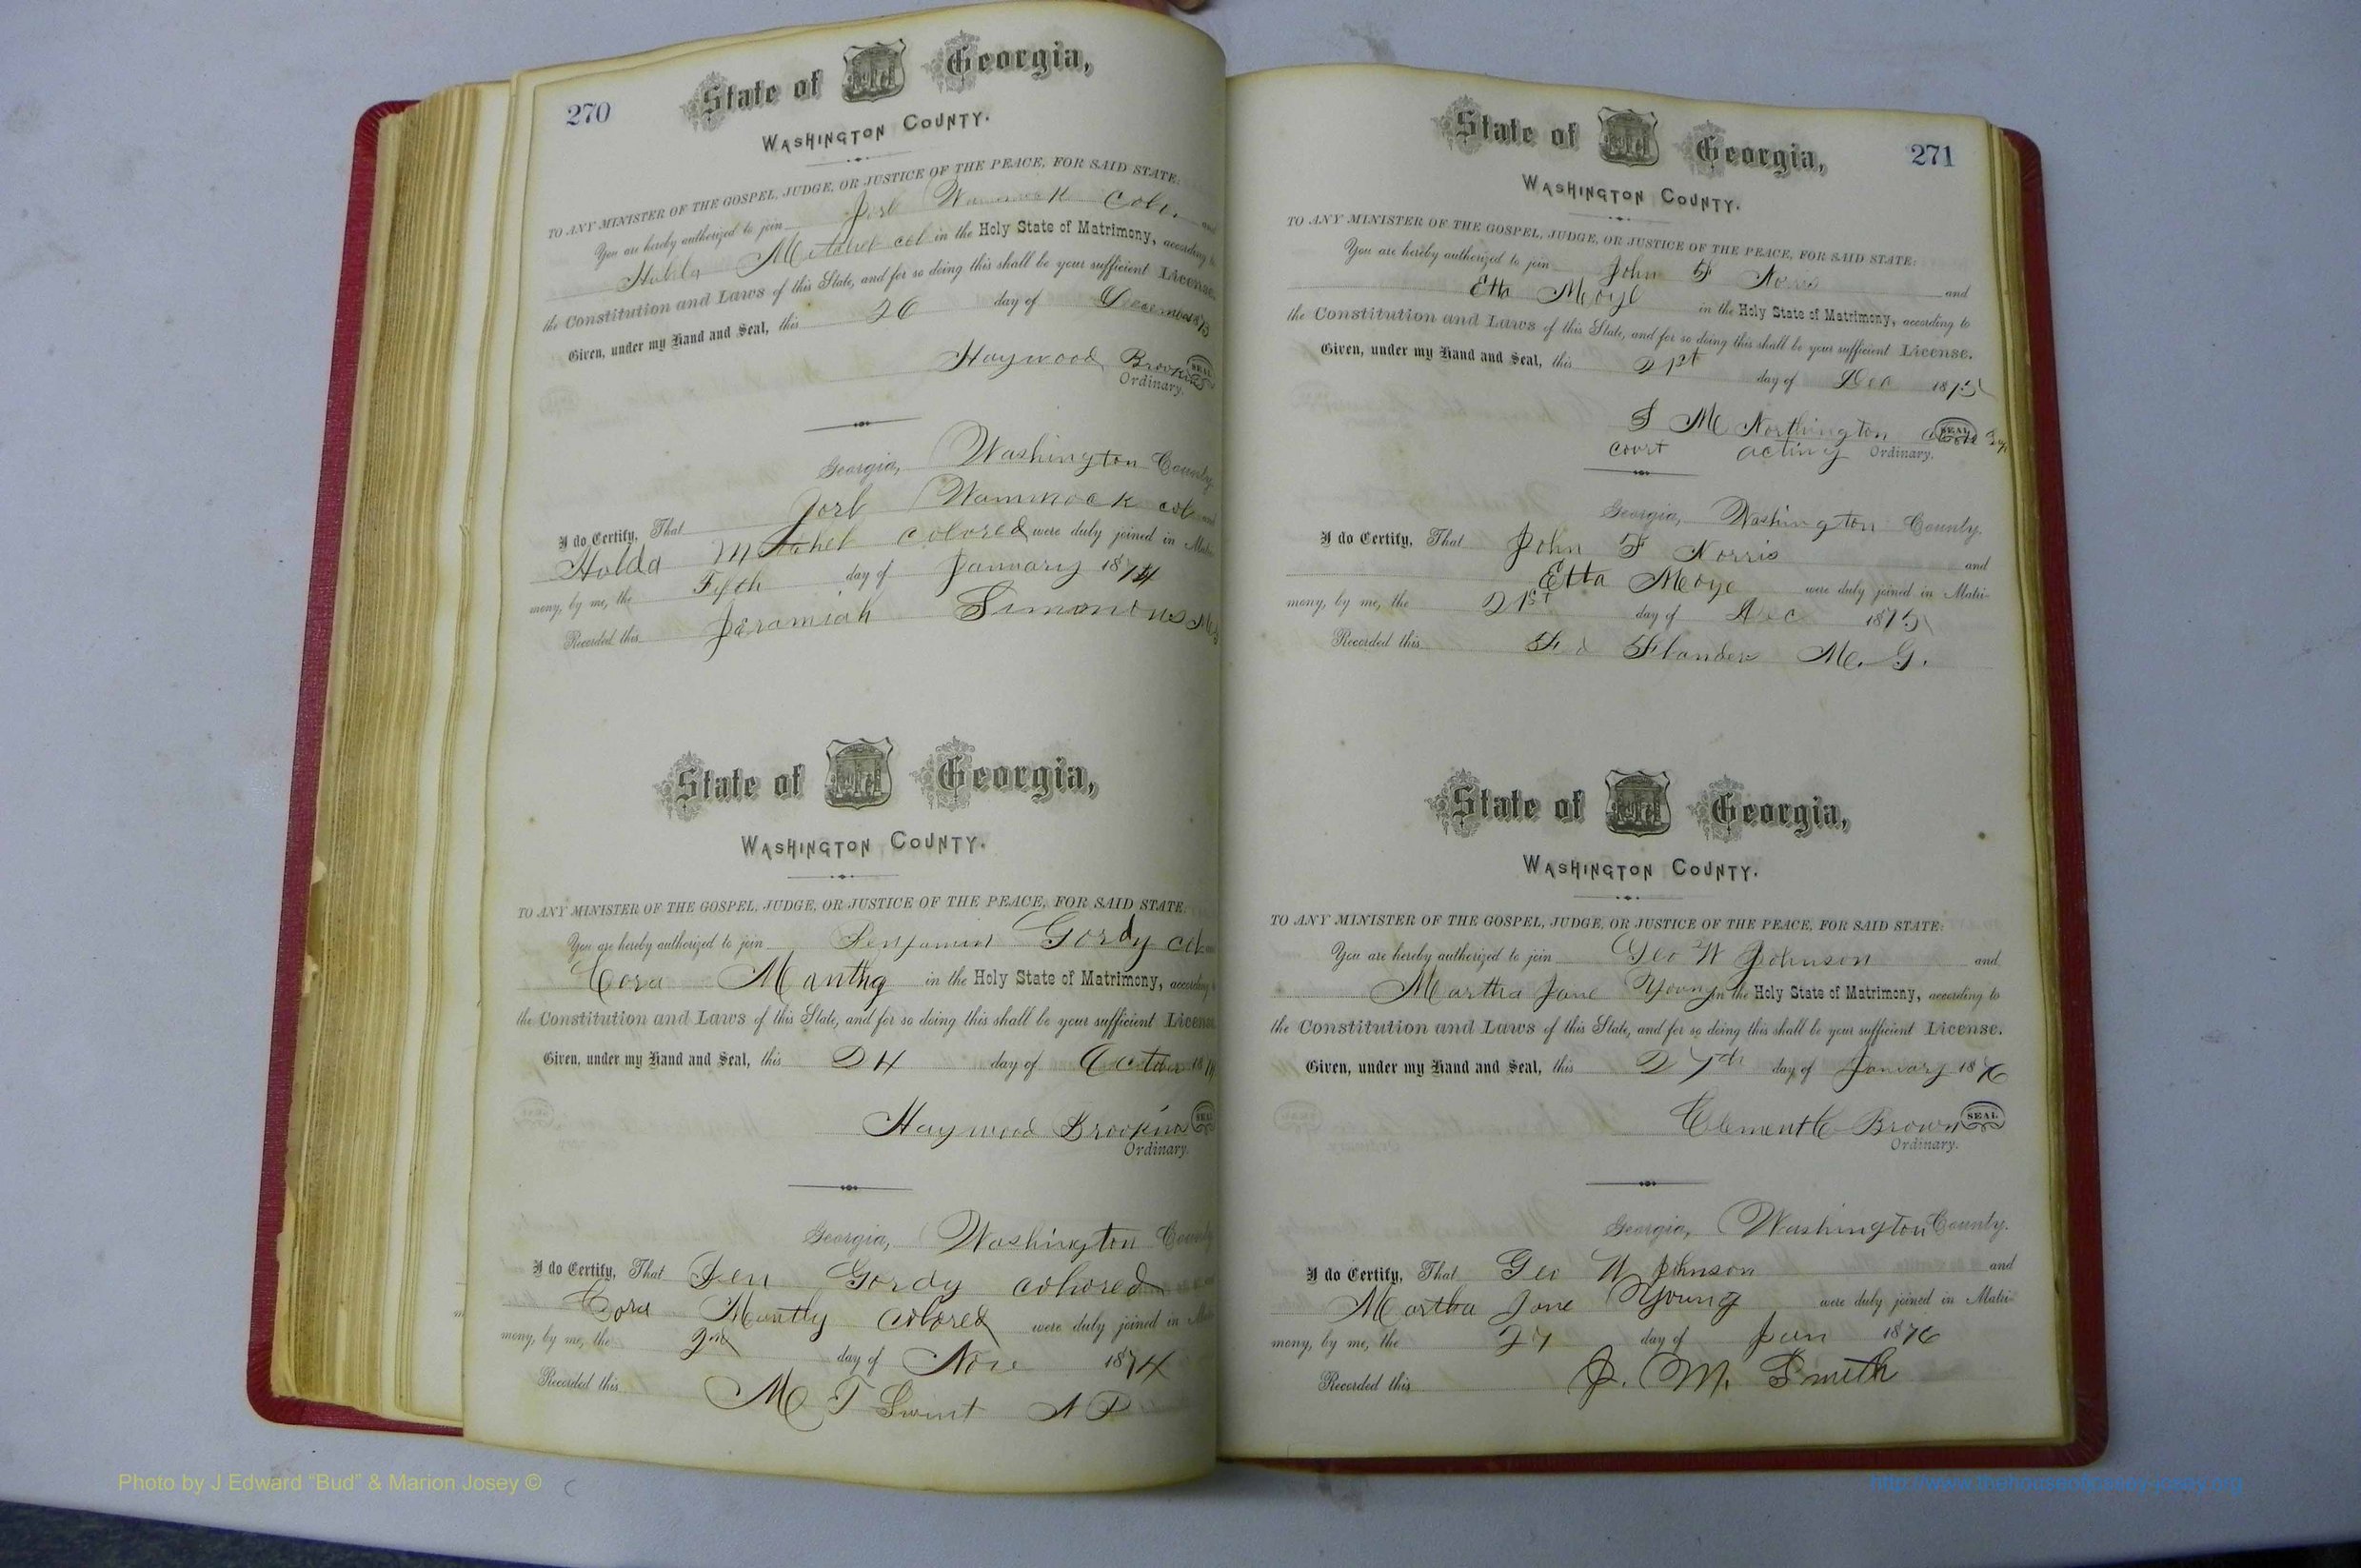 270
State of Georgia,
WASHINGTON COUNTY.
TO ANY MINISTER OF THE GOSPEL, JUDGE, OR JUSTICE OF THE PEACE, FOR SAID STATE:
You are hereby authorized to join Wammock Col
col in the Holy State of Matrimony, according to
the Constitution and Laws of this State, and for so doing this shall be your sufficient License.
Given, under my Hand and Seal, this 26 day of December 1873
Haywood Brookins SEAL
Ordinary.
Georgia, Washington County
I do Certify, That Wammock col and
Holda colored were duly joined in Matri-
mony, by me, the Fifth day of January 1874
Recorded this Jeramiah Simmons
State of Georgia,
WASHINGTON COUNTY.
TO ANY MINISTER OF THE GOSPEL, JUDGE, OR JUSTICE OF THE PEACE, FOR SAID STATE:
You are hereby authorized to join Benjamin Gordy col
Cora in the Holy State of Matrimony, according
the Constitution and Laws of this State, and for so doing this shall be your sufficient License
Given, under my Hand and Seal, this 24 day of October 187
Haywood Brookins SEAL
Ordinary.
Georgia, Washington County
I do Certify, That Ben Gordy colored
Cora colored were duly joined in
mony, by me, the day of Nov 1874
Recorded this M T Swint N P
271
State of Georgia,
WASHINGTON COUNTY.
TO ANY MINISTER OF THE GOSPEL, JUDGE, OR JUSTICE OF THE PEACE, FOR SAID STATE:
You are hereby authorized to join John F Norris and
Etta Moye in the Holy State of Matrimony, according to
the Constitution and Laws of this State, and for so doing this shall be your sufficient License.
Given, under my Hand and Seal, this 21st day of Dec 1875
S M Northington Clerk SEAL
court acting Ordinary.
Georgia, Washington County.
I do Certify, That John F Norris and
Etta Moye were duly joined in Matri-
mony, by me, the 21st day of Dec 1875
Recorded this Flanders M. G.
State of Georgia,
WASHINGTON COUNTY.
TO ANY MINISTER OF THE GOSPEL, JUDGE, OR JUSTICE OF THE PEACE, FOR SAID STATE:
You are hereby authorized to join Geo W Johnson and
Martha Jane Young in the Holy State of Matrimony, according to
the Constitution and Laws of this State, and for so doing this shall be your sufficient License.
Given, under my Hand and Seal, this 27th day of January 1876
Clement C Brown SEAL
Ordinary.
Georgia, Washington County.
I do Certify, That Geo W Johnson and
Martha Jane Young were duly joined in Matri-
mony, by me, the 27 day of Jan 1876
Recorded this J. M. Smith
Photo by J Edward “Bud” & Marion Josey ©